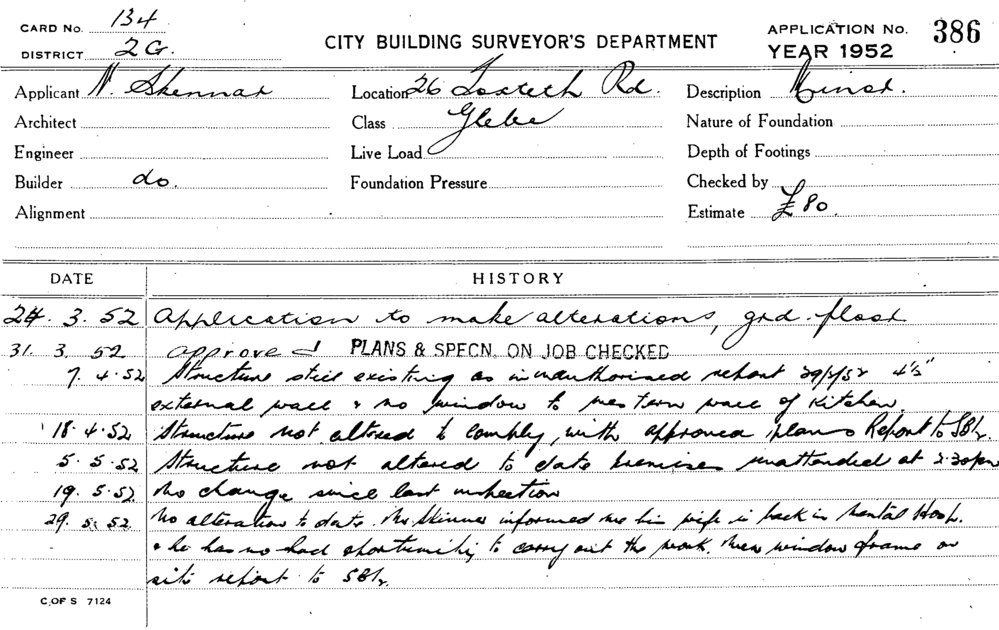 CARD No. 134
DISTRICT 2G.
CITY BUILDING SURVEYOR'S DEPARTMENT
APPLICATION No. 386
YEAR 1952
Applicant N. Skennar Location 26 Toxteth Rd. Description Minor.
Architect Class Glebe Nature of Foundation
Engineer Live Load Depth of Footings
Builder do. Foundation Pressure Checked by
Alignment Estimate £80.
DATE HISTORY
24. 3. 52 Application to make alterations, grd. floor
31. 3. 52 approved PLANS & SPECN. ON JOB CHECKED
7. 4. 52 Structure still existing as in unauthorised report 29/2/52 4½"
external wall & no window to western wall of Kitchen
18. 4. 52 Structure not altered to comply, with approved plans Report to SBI.
5. 5. 52 Structure not altered to date premises unattended at 2.30pm
19. 5. 52 No change since last inspection
29. 5. 52 No alteration to date. Mr Skinner informed me his wife is back in Mental Hosp.
& he has no had oportunity to carry out the work. New window frame on
site report to SBI.
C OF S 7124